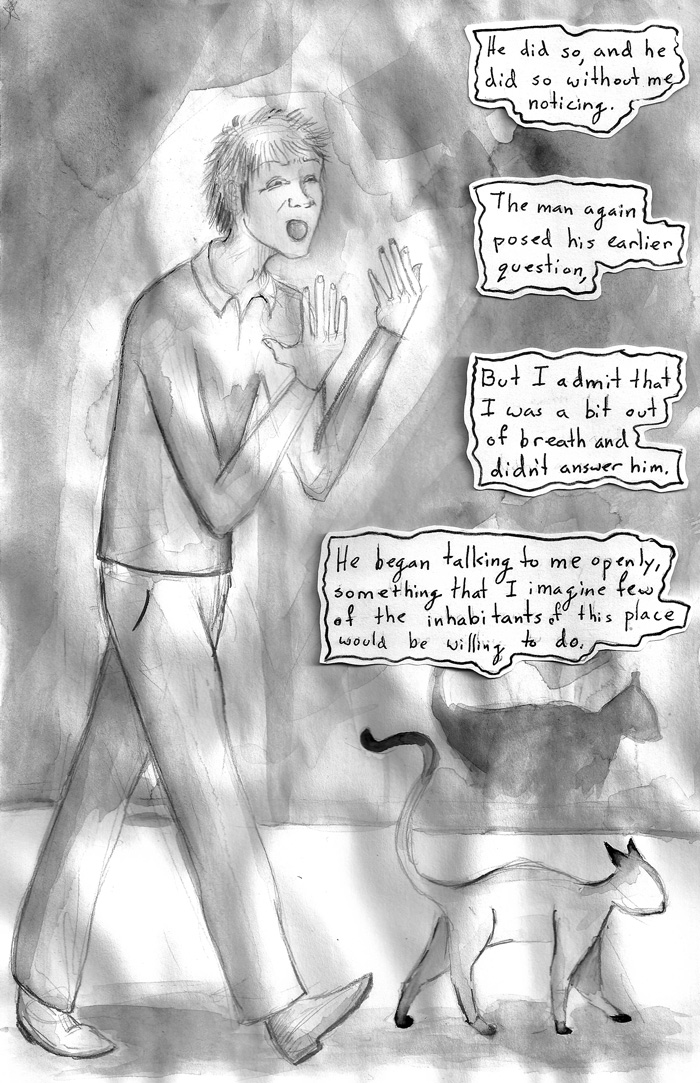 He did so, and he
did so without me
noticing.
The man again
posed his earlier
question,
But I admit that
I was a bit out
of breath and
didn't answer him.
He began talking to me openly,
something that I imagine few
of the inhabitants of this place
would be willing to do.